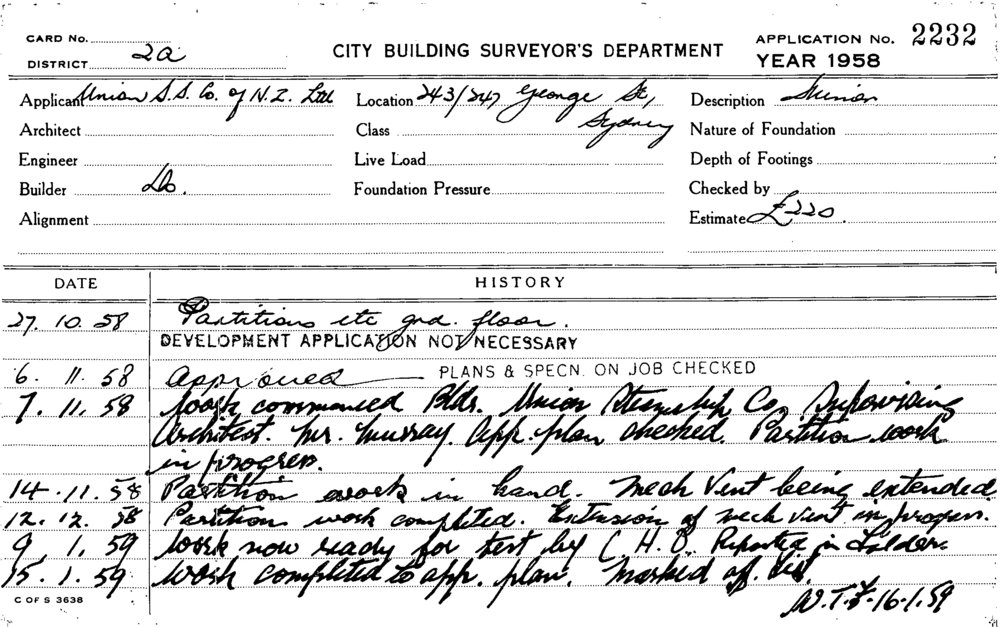 CARD No.
DISTRICT 2a
CITY BUILDING SURVEYOR'S DEPARTMENT
APPLICATION No. 2232
YEAR 1958
Applicant Union S.S. Co. of N.Z. Ltd
Location 243/247 George St,
Sydney
Description Minor
Architect
Class
Nature of Foundation
Engineer
Live Load
Depth of Footings
Builder Do.
Foundation Pressure
Checked by
Alignment
Estimate £220.
DATE HISTORY
27. 10. 58 Partitions etc grd. floor.
DEVELOPMENT APPLICATION NOT NECESSARY
6. 11. 58 Approved PLANS & SPECN. ON JOB CHECKED
7. 11. 58 Work commenced Bldr. Union Steamship Co, Supervising
Architect. Mr. Murray. App. plan checked. Partition work
in progress.
14. 11. 58 Partition work in hand. Mech Vent being extended.
12. 12. 58 Partition work completed. Extension of mech vent in progress.
9. 1. 59 Work now ready for test by C.H.O. Reported in Folder.
15. 1. 59 Work completed to app. plan. Marked off list.
16.1.59
C OF S 3638